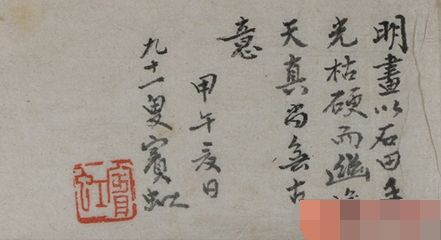 明畫以石田
光枯硬而繼
天真尚無古
意
甲午夏日
九十一叟賓虹
賓虹